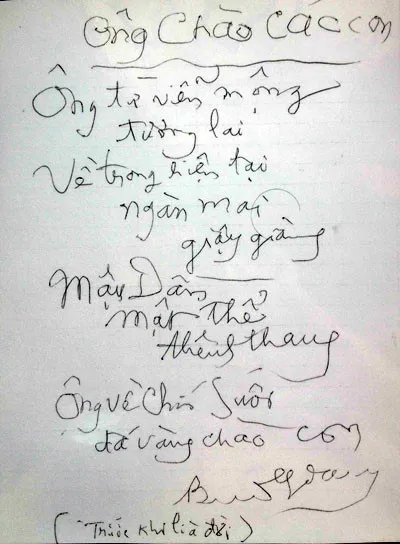 Ông Chào Các con
Ông từ viễn mộng
tương lai
Về trong hiện tại
ngàn mai
giậy giàng
Mậu Dần
một thể
thênh thang
Ông về Chín Suối
đá vàng chào con
(Trước khi lià đời)